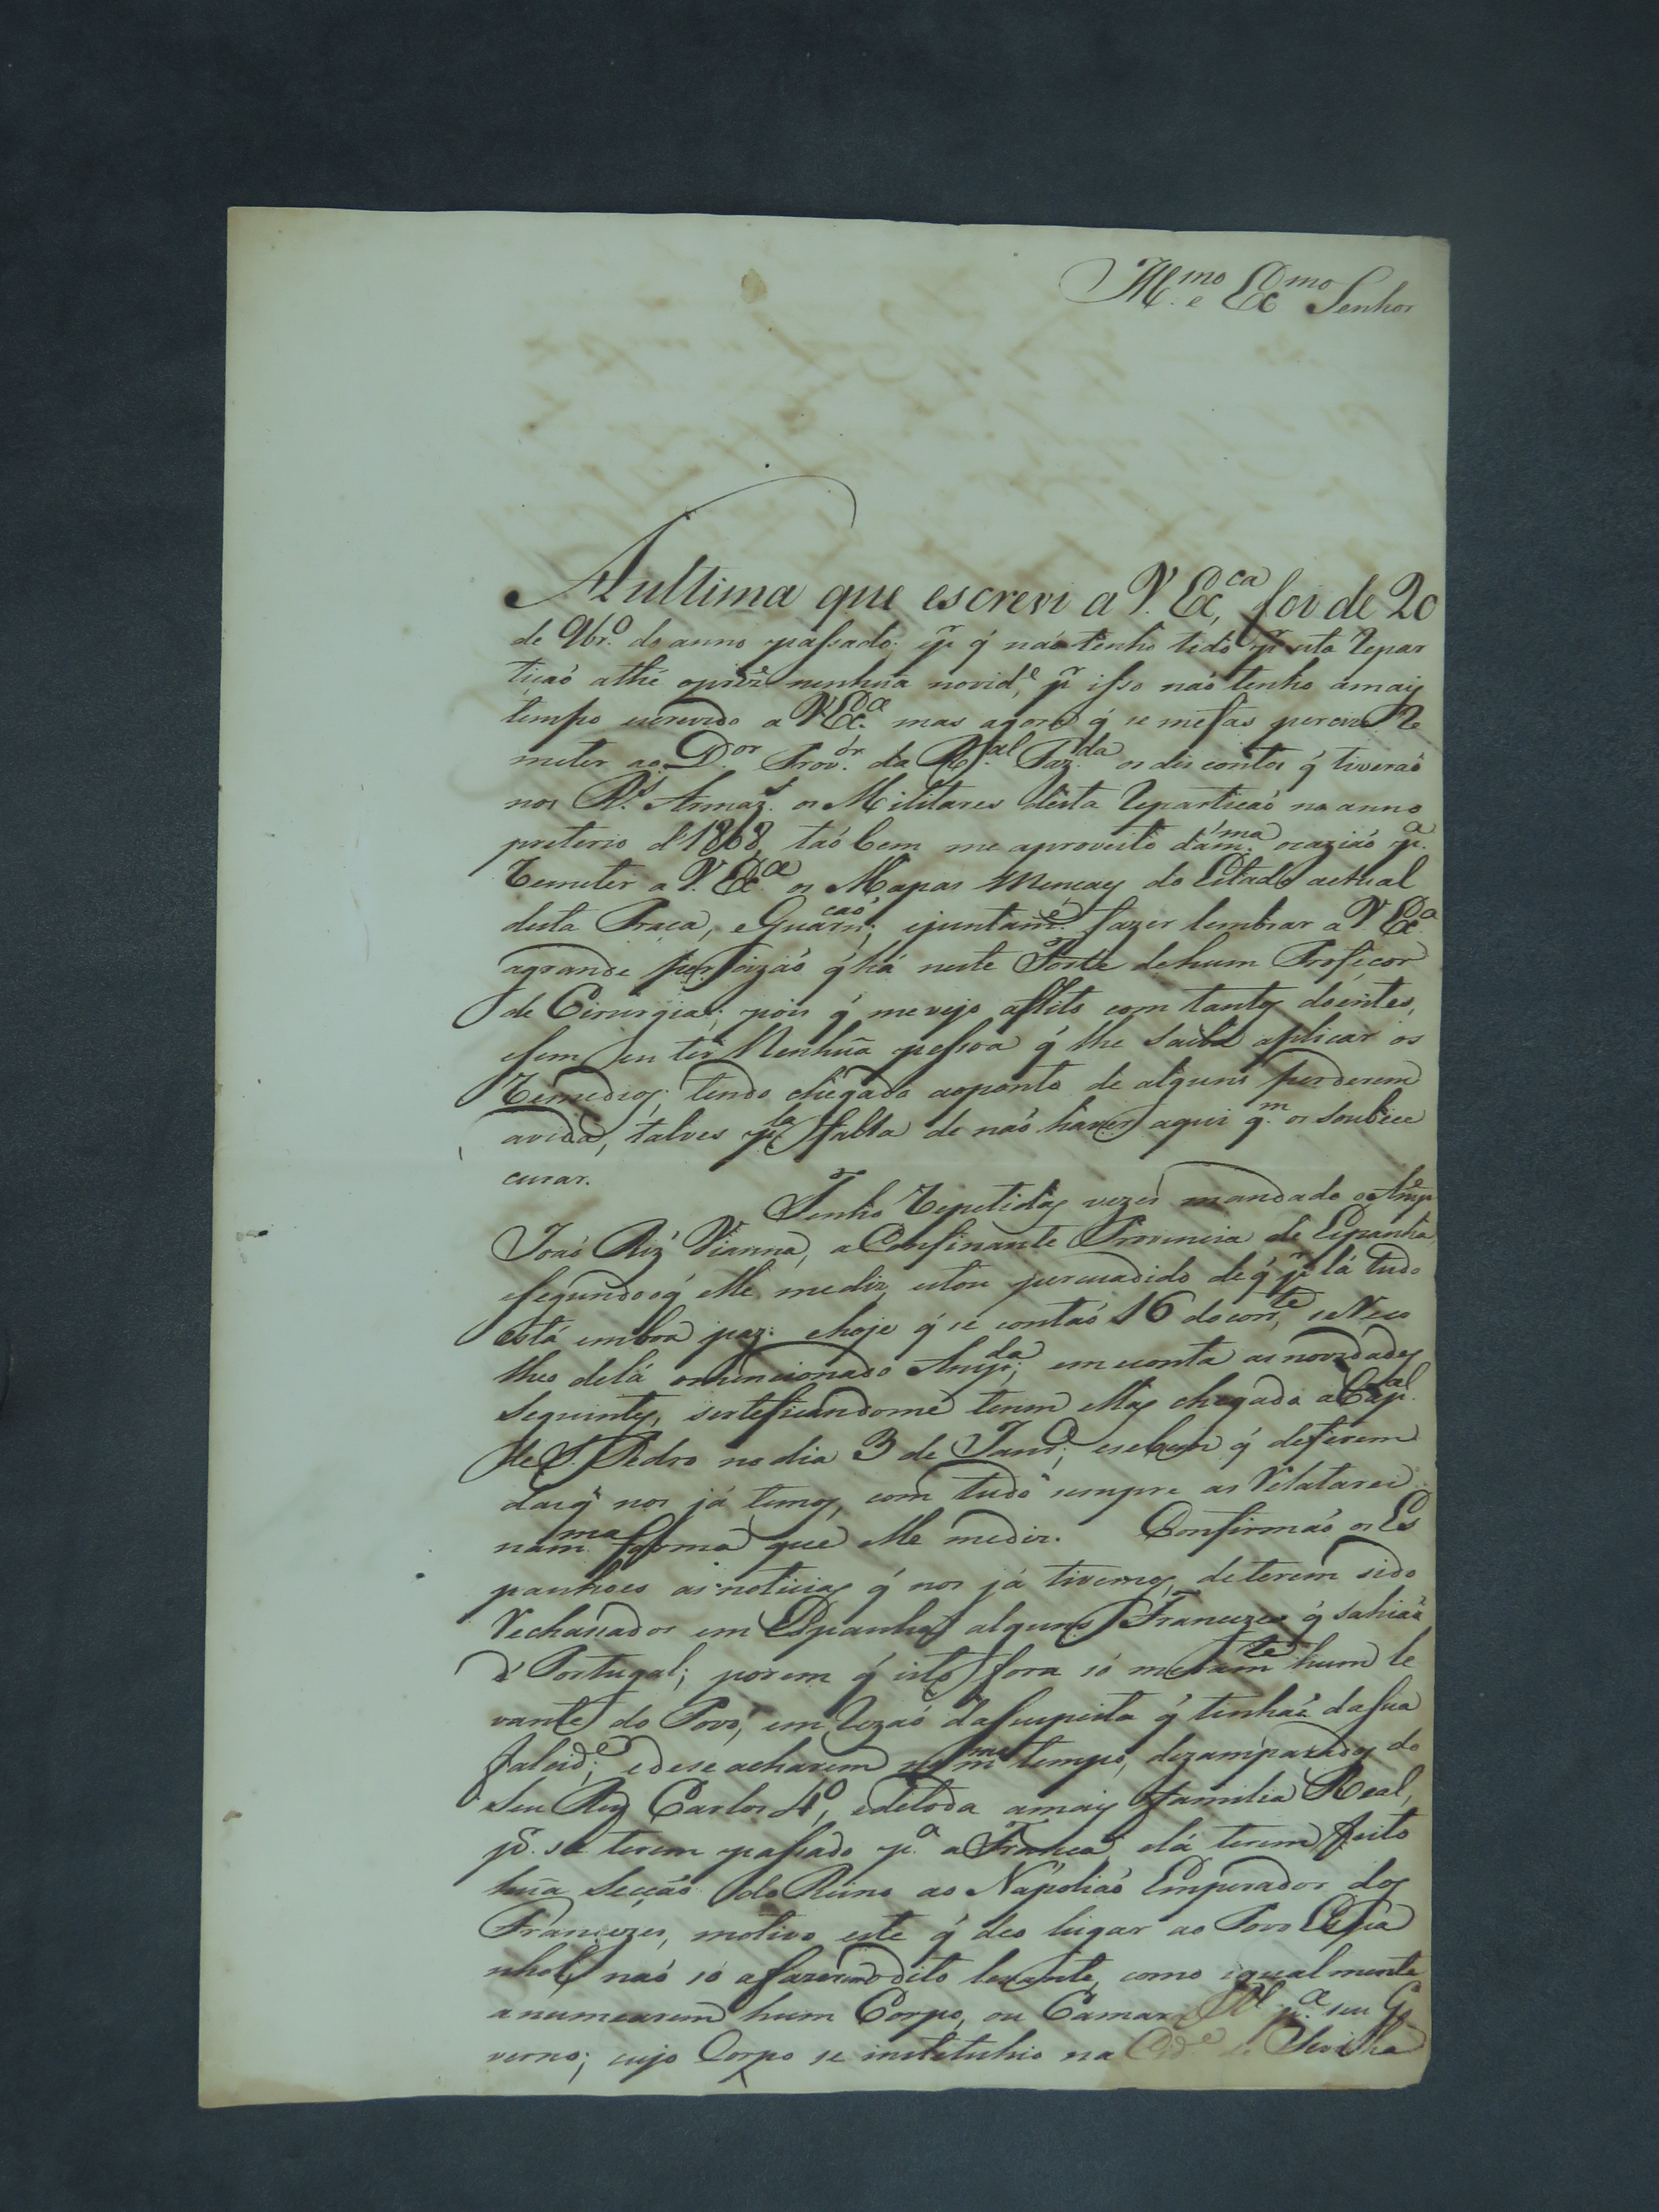 Ill.mo e Ex.mo Senhor
A ultima que escrevi a V. Ex.ca, foi de 20
de 9br.o do anno passado: pr q' não tenho tido pr esta Repar
tiçaõ athé oprez.e nenhuã novid.e, pr isso naõ tenho amais
tempo escrevido a V. Ex.a mas agora q' se mefas percizo Re
meter ao D.or Prov.or da R.al Faz.da os discontos q' tiveraõ
nos R.s Armaz.s os Militares desta Repartiçaõ no anno
preterio d'1808, taõ bem me aproveito dam.ma ocaziaõ p.a
Remeter a V. Ex.a os Mapas Mencays do Estado actual
desta Praça, e Guarn.çaõ; ejuntam.e fazer lembrar a V. Ex.a
agrande percizaõ q' há neste Forte dehum Profeçor
de Cirurgia; pois q' mevejo aflito com tantos doentes,
esem eu ter Nenhuã pessoa q' lhe saiba aplicar os
Remedios; tendo chegado aoponto de alguns perderem
avida, talves p.la falta de naõ haver aqui q.m os soubece
curar.
Tenho Repetidas vezes mandado o Ansp.e
Joaõ Riz' Vianna, a Confinante Provincia de Espanha,
esegundo oq' Elle mediz, estou percuadido deq' pr lá tudo
está emboa paz: ehoje q' se contaõ 16 docorr.te, se Reco
lheo delá omencionado Ansp.da; em conta as novidades
Seguintes, serteficandome terem Ellas chegado a Cap.al
de S. Pedro no dia 3 de Janr.o; esebem q' deferem
dasq' nos já temos, com tudo sempre as Relatarei
nam.ma forma que Elle mediz. Confirmaõ os Es
panhoes as noticias q' nos já tivemos, deterem sido
Rechassados em Espanha alguns Francezes q' sahiaõ
d' Portugal; porem q' isto fora só meram.te hum le
vante do Povo, em Rezaõ dasuspeita q' tinhaõ dasua
falcid.e; edese acharem nom.mo tempo, dezamparados do
Seu Rey Carlos 4.o, edetoda amais Familia Real,
pr se terem passado p.a a França, elá terem feito
huã Secçaõ do Reino ao Nápoliaõ Emperador dos
Francezes, motivo este q' deo lugar ao Povo Espa
nhol, naõ só afazerem odito levante, como igualmente
anumearem hum Corpo, ou Camara R.l p.a seu Go
verno; cujo Corpo se instituhio na Cid.e de Sevilha